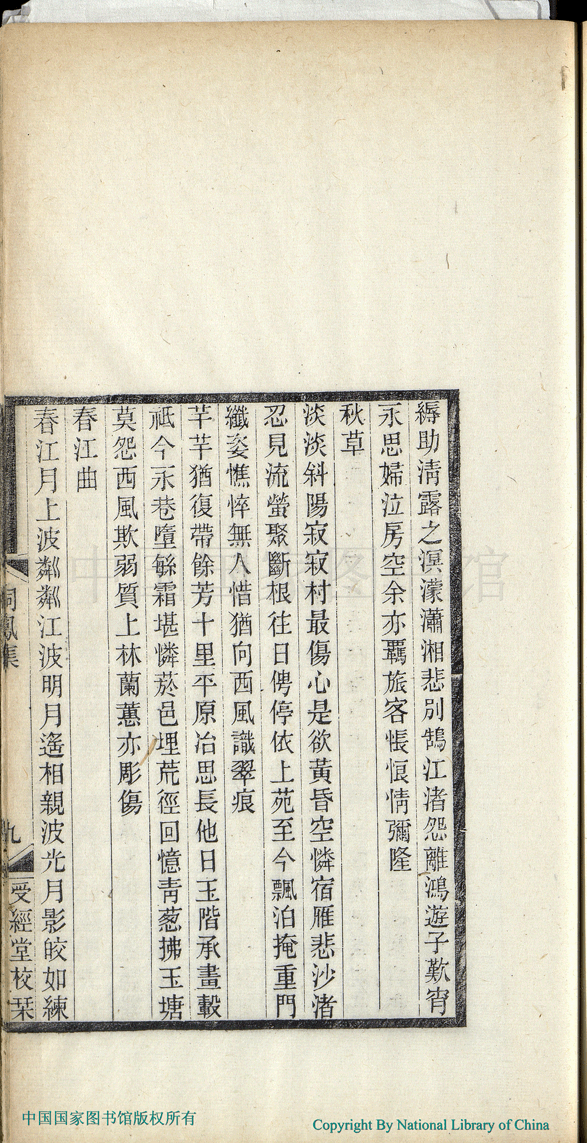 縟助淸露之溟濛瀟湘悲別鵠江渚怨離鴻遊子歎宵
永思婦泣房空余亦羈旅客悵悢情彌隆
秋草
淡淡斜陽寂寂村最傷心是欲黃昏空憐宿雁悲沙渚
忍見流螢聚斷根往日俜停依上苑至今飄泊掩重門
纖姿憔悴無人惜猶向西風識翠痕
芊芊猶復帶餘芳十里平原冶思長他日玉階承畫轂
祗今永巷墮緐霜堪憐菸邑埋荒徑回憶靑蔥拂玉塘
莫怨西風欺弱質上林蘭蕙亦彫傷
春江曲
春江月上波粼粼江波明月遙相親波光月影皎如練
桐鳳集
九
受經堂校栞
中国国家图书馆
中国国家图书馆版权所有
Copyright By National Library of China